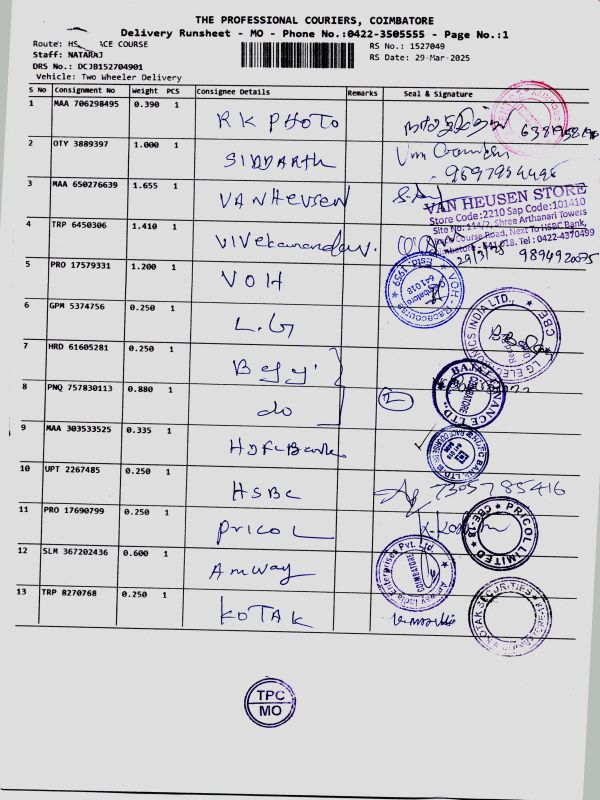 THE PROFESSIONAL COURIERS, COIMBATORE
Delivery Runsheet - MO - Phone No.:0422-3505555 - Page No.:1
Route: ACE COURSE
RS No.: 1527049
Staff: NATARAJ
RS Date: 29-Mar-2025
DRS No.: DCJB152704901
Vehicle: Two Wheeler Delivery
S No Consignment No Weight PCS Consignee Details Remarks Seal & Signature
1 MAA 706298495 0.390 1 RK PHOTO
2 OTY 3889397 1.000 1 SIDDARTH
3 MAA 650276639 1.655 1 VANHEUSEN
VAN HEUSEN STORE
Store Code:2210 Sap Code:101410
Site No: 114/2, Shree Arthanari Towers
Course Road, Next To HSBC Bank,
018. Tel : 0422-4370499
4 TRP 6450306 1.410 1 Vivekanandan. 29/3/25 9894920075
5 PRO 17579331 1.200 1 VOH
ESTD 1959 VOH - RACECOURSE Coimbatore 641018
6 GPM 5374756 0.250 1 L.G
LG ELECTRONICS INDIA LTD., CBE
7 HRD 61605281 0.250 1 Bajaj
8 PNQ 757830113 0.880 1 do 2
BAJAJ FINANCE LTD COIMBATORE
9 MAA 303533525 0.335 1 HDFC Bank
HDFC BANK LTD
10 UPT 2267485 0.250 1 HSBC 7305785416
11 PRO 17690799 0.250 1 PRICOL
PRICOL LIMITED CBE-18
12 SLM 367202436 0.600 1 AMWAY
Amway India Enterprises Pvt. Ltd. COIMBATORE
13 TRP 8270768 0.250 1 KOTAK
KOTAK SECURITIES
TPC
MO